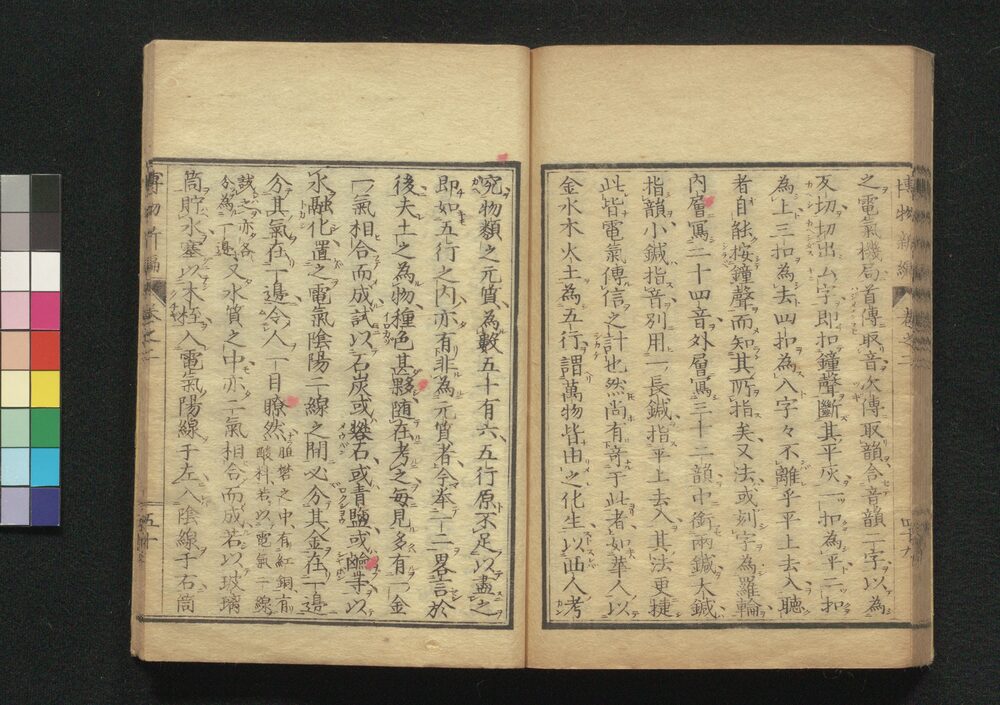 之電氣機局首傳取音次傳取韻合音韻二字以為
反切切出厶字即扣鐘聲斷其平仄一扣為平二扣
為上三扣為去四扣為入字々不離乎平上去入聽
者自能按鐘聲而知其所指矣又法或刻字為羅輪
內層寫二十四音外層寫三十二韻中銜兩鍼木鍼
指韻小鍼指音別用一長鍼指平上去入其法更捷
此皆電氣傳信之計也然尚有奇于此者如華人以
金水木火土為五行謂萬物皆由之化生以西人考
究物類之元質為數五十有六五行原不足以盡之
即如五行之內亦有非為元質者今舉一二畧言於
後夫土之為物種色甚夥随在考之每見多有一金
一氣相合而成試以石炭或礬石或青鹽或鹼等以
水融化置之電氣陰陽二線之間必分其金在一邊
分其氣在一邊令人一目瞭然 胆礬之中有紅銅有酸料若以電氣二線
試之亦各分為一邊 又水質之中亦二氣相合而成若以玻璃
筒貯水塞以木枉入電氣陽線于左入陰線于右筒
博物新編 卷之二